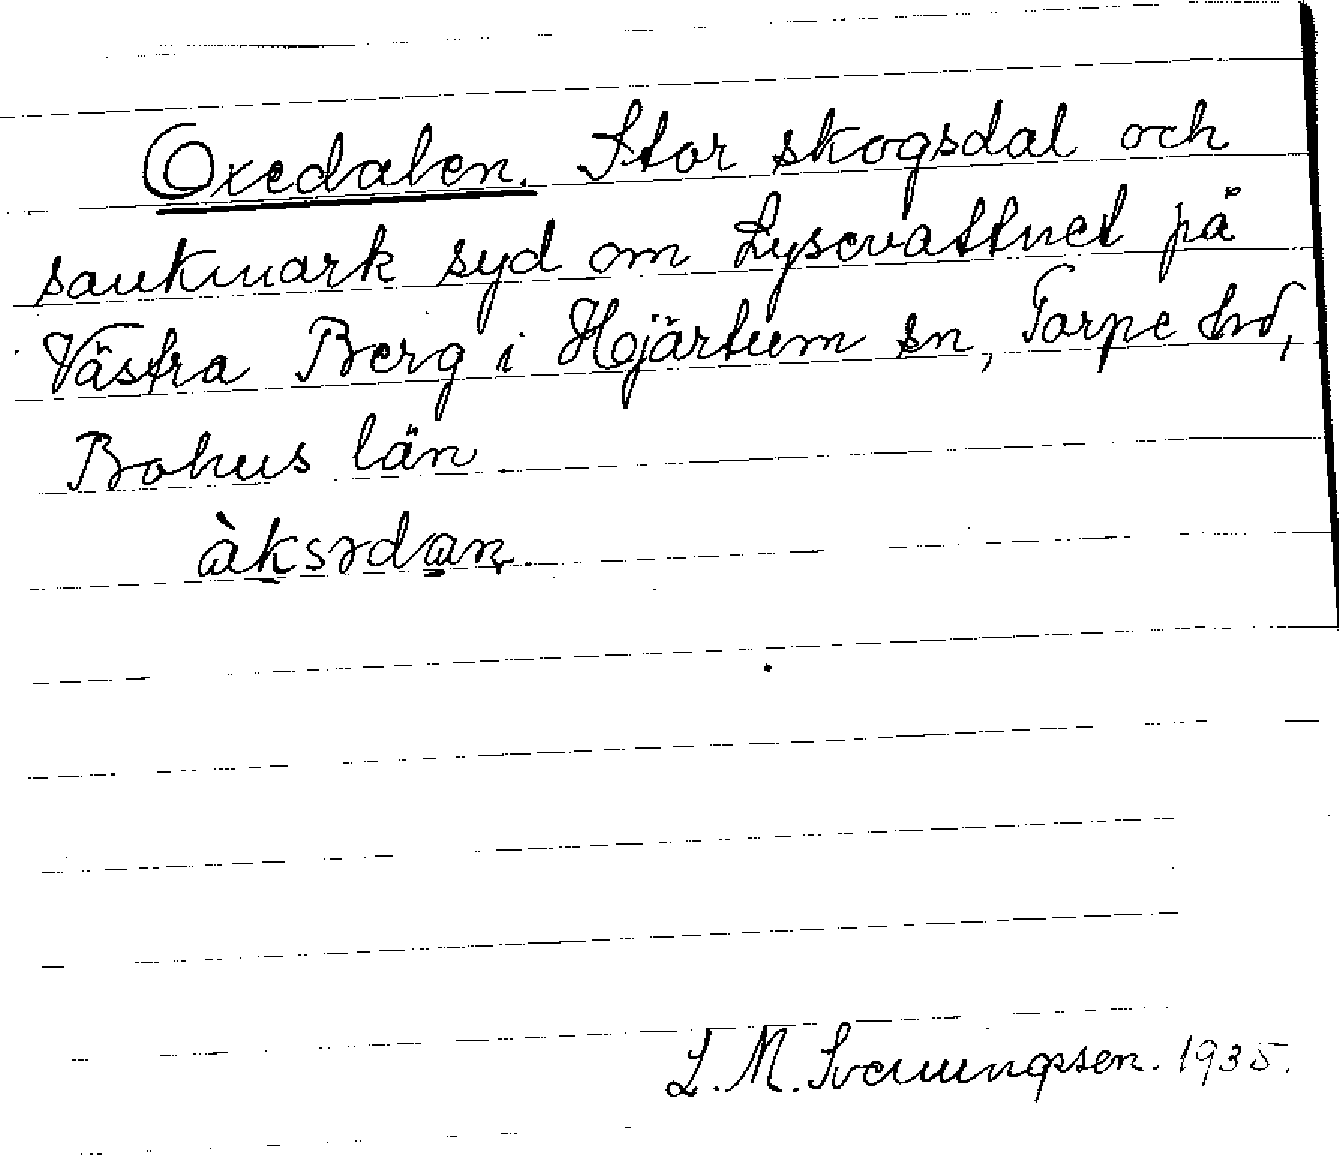 Oxedalen. Stor skogsdal och
sankmark syd om Lysevattnet på
Västra Berg i Hjärtum sn, Torpe hd,
Bohus län
àksədan
L. M. Svenungsson. 1935.